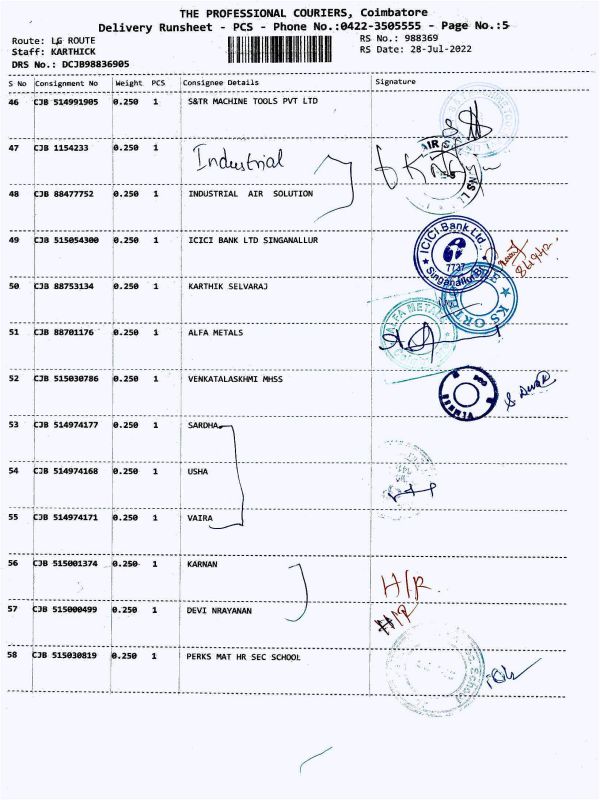 THE PROFESSIONAL COURIERS, Coimbatore
Delivery Runsheet - PCS - Phone No.:0422-3505555 - Page No.:5
Route: LG ROUTE
Staff: KARTHICK
DRS No.: DCJB98836905
RS No.: 988369
RS Date: 28-Jul-2022
S No Consignment No Weight PCS Consignee Details Signature
46 CJB 514991905 0.250 1 S&TR MACHINE TOOLS PVT LTD
47 CJB 1154233 0.250 1 Industrial
48 CJB 88477752 0.250 1 INDUSTRIAL AIR SOLUTION
49 CJB 515054300 0.250 1 ICICI BANK LTD SINGANALLUR
ICICI Bank Ltd.
6
7737
Singanallur Br
50 CJB 88753134 0.250 1 KARTHIK SELVARAJ
51 CJB 88701176 0.250 1 ALFA METALS
ALFA METAL
52 CJB 515030786 0.250 1 VENKATALASKHMI MHSS
53 CJB 514974177 0.250 1 SARDHA
54 CJB 514974168 0.250 1 USHA
55 CJB 514974171 0.250 1 VAIRA
56 CJB 515001374 0.250 1 KARNAN
H/R
57 CJB 515000499 0.250 1 DEVI NRAYANAN
H/R
58 CJB 515030819 0.250 1 PERKS MAT HR SEC SCHOOL